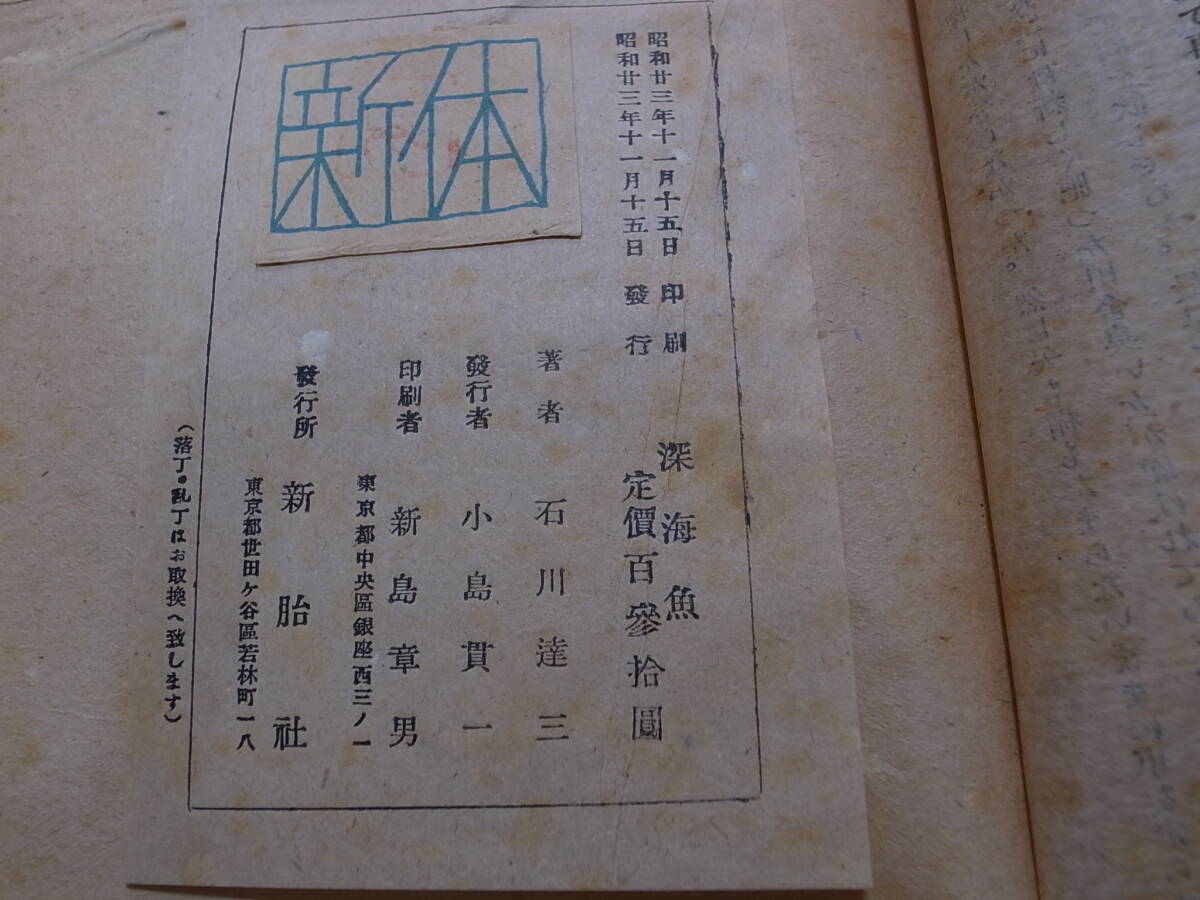 昭和廿三年十一月十五日 印刷
昭和廿三年十一月十五日 發行
深海魚
定價百參拾圓
著者 石川達三
發行者 小島貫一
印刷者 新島章男
東京都中央區銀座西三ノ一
發行所 新胎社
東京都世田ヶ谷區若林町一八
(落丁・乱丁はお取換へ致します)
新体